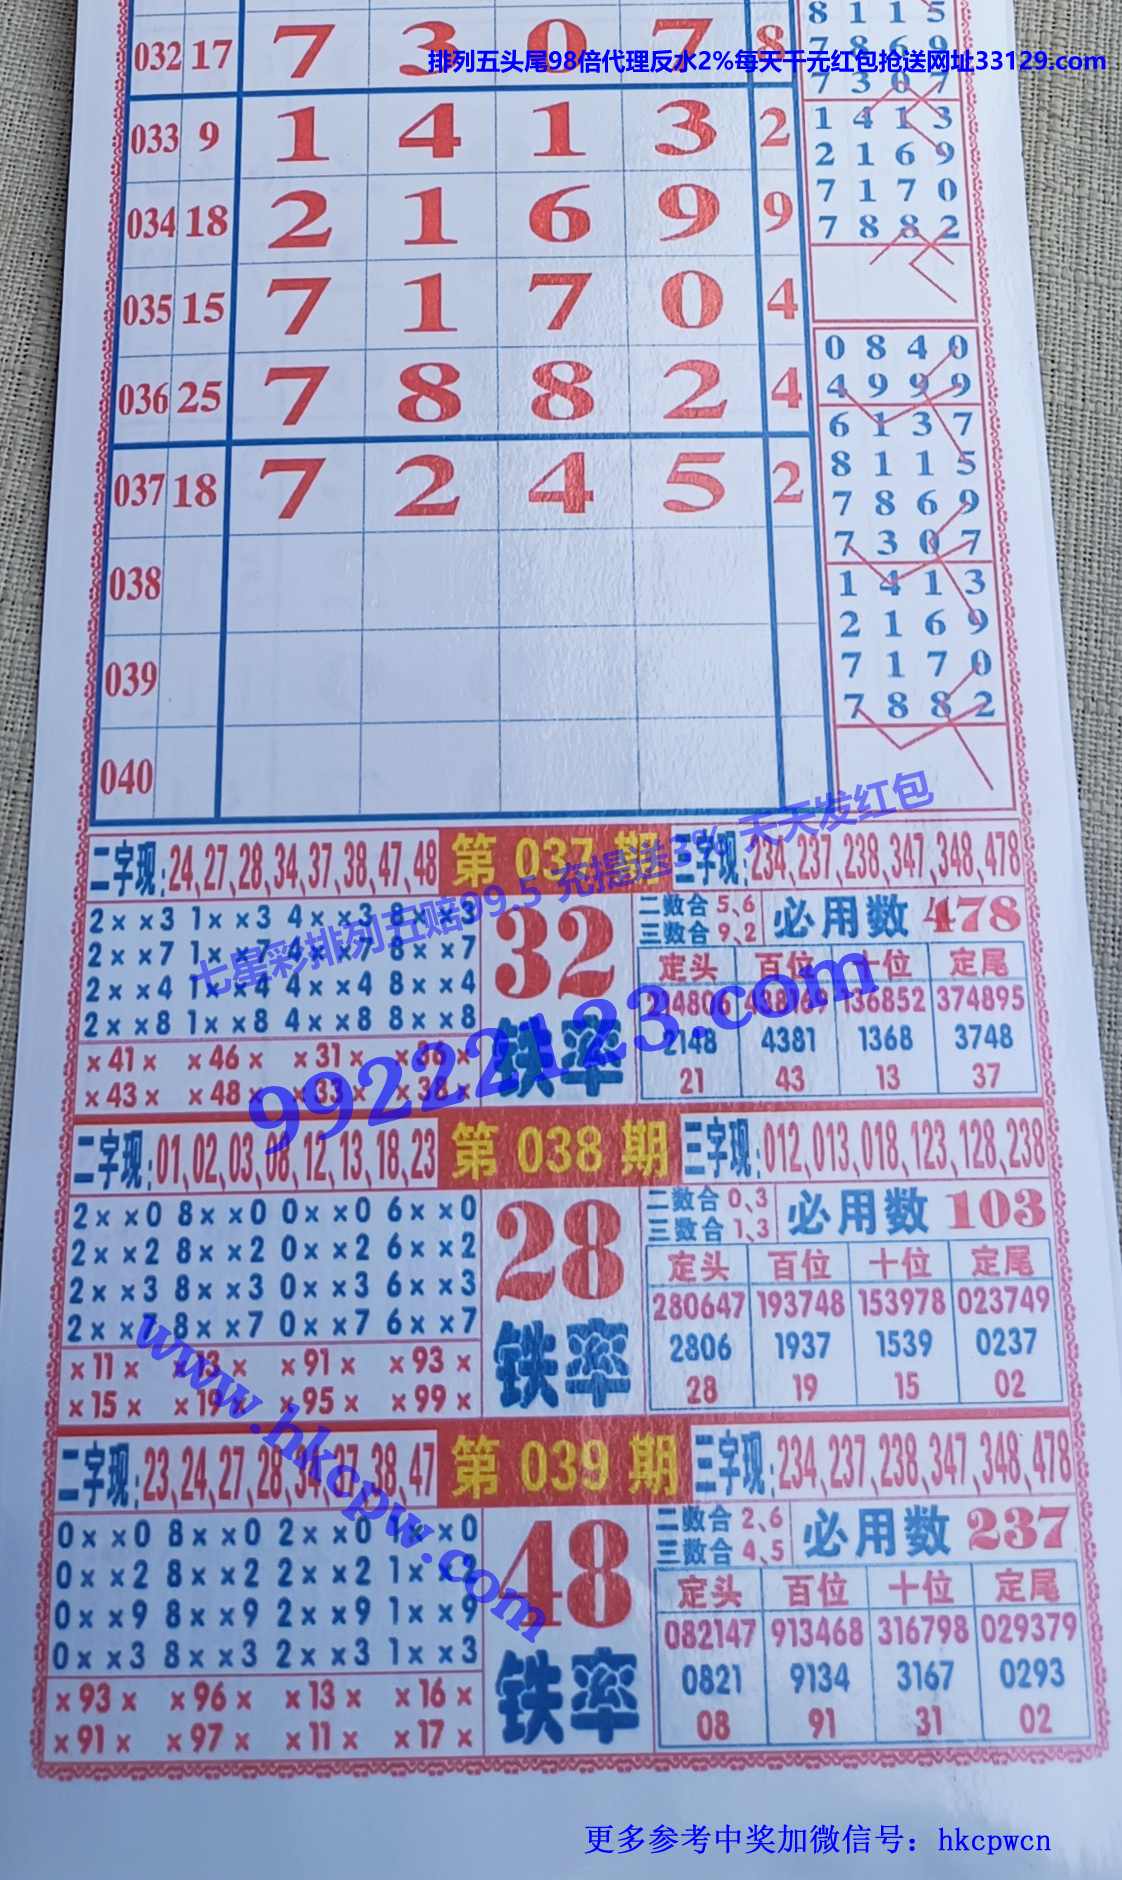 8 1 1 5
7 8 6 9
7 3 0 7
032 17 7 3 0 7 8
排列五头尾98倍代理反水2%每天千元红包抢送网址33129.com
033 9 1 4 1 3 2
1 4 1 3
2 1 6 9
7 1 7 0
7 8 8 2
034 18 2 1 6 9 9
035 15 7 1 7 0 4
036 25 7 8 8 2 4
0 8 4 0
4 9 9 9
6 1 3 7
8 1 1 5
7 8 6 9
7 3 0 7
1 4 1 3
2 1 6 9
7 1 7 0
7 8 8 2
037 18 7 2 4 5 2
038
039
040
七星彩排列五赔99.5 充提送3% 天天发红包
99222123.com
www.hkcpw.com
二字现:24,27,28,34,37,38,47,48 第 037 期 三字现:234,237,238,347,348,478
2××3 1××3 4××3 8××3
2××7 1××7 4××7 8××7
2××4 1××4 4××4 8××4
2××8 1××8 4××8 8××8
×41× ×46× ×31× ×36×
×43× ×48× ×33× ×38×
32
铁率
二数合 5、6
三数合 9、2
必用数 478
定头 百位 十位 定尾
214806 438169 136852 374895
2148 4381 1368 3748
21 43 13 37
二字现:01,02,03,08,12,13,18,23 第 038 期 三字现:012,013,018,123,128,238
2××0 8××0 0××0 6××0
2××2 8××2 0××2 6××2
2××3 8××3 0××3 6××3
2××7 8××7 0××7 6××7
×11× ×13× ×91× ×93×
×15× ×19× ×95× ×99×
28
铁率
二数合 0、3
三数合 1、3
必用数 103
定头 百位 十位 定尾
280647 193748 153978 023749
2806 1937 1539 0237
28 19 15 02
二字现:23,24,27,28,34,37,38,47 第 039 期 三字现:234,237,238,347,348,478
0××0 8××0 2××0 1××0
0××2 8××2 2××2 1××2
0××9 8××9 2××9 1××9
0××3 8××3 2××3 1××3
×93× ×96× ×13× ×16×
×91× ×97× ×11× ×17×
48
铁率
二数合 2、6
三数合 4、5
必用数 237
定头 百位 十位 定尾
082147 913468 316798 029379
0821 9134 3167 0293
08 91 31 02
更多参考中奖加微信号：hkcpwcn